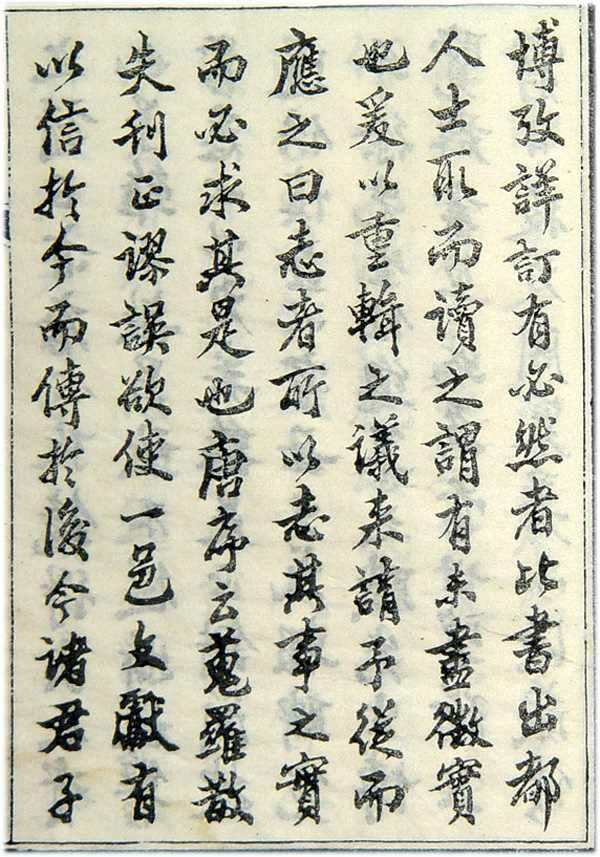 博攷詳訂有必然者比書出都
人士取而讀之謂有未盡徵實
也爰以重輯之議來請予從而
應之曰志者所以志其事之實
而必求其是也唐序云蒐羅散
失刋正謬誤欲使一邑文獻有
以信於今而傳於後今諸君子